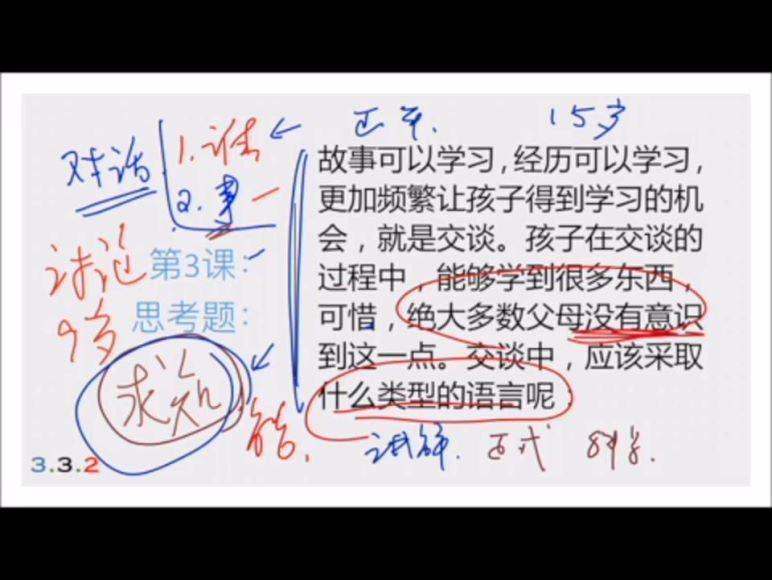 15岁
对话
1.话
2.事
故事可以学习,经历可以学习,
更加频繁让孩子得到学习的机
会，就是交谈。孩子在交谈的
过程中，能够学到很多东西，
可惜，绝大多数父母没有意识
到这一点。交谈中，应该采取
什么类型的语言呢：
第3课：
思考题：
讨论
9岁
求知
讲解.
3.3.2